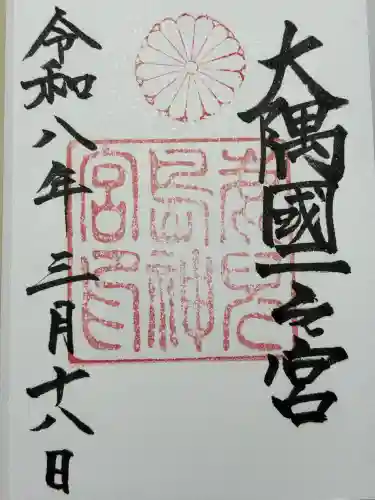 大隅國一之宮
鹿兒
島神
宮印
令和八年三月十八日